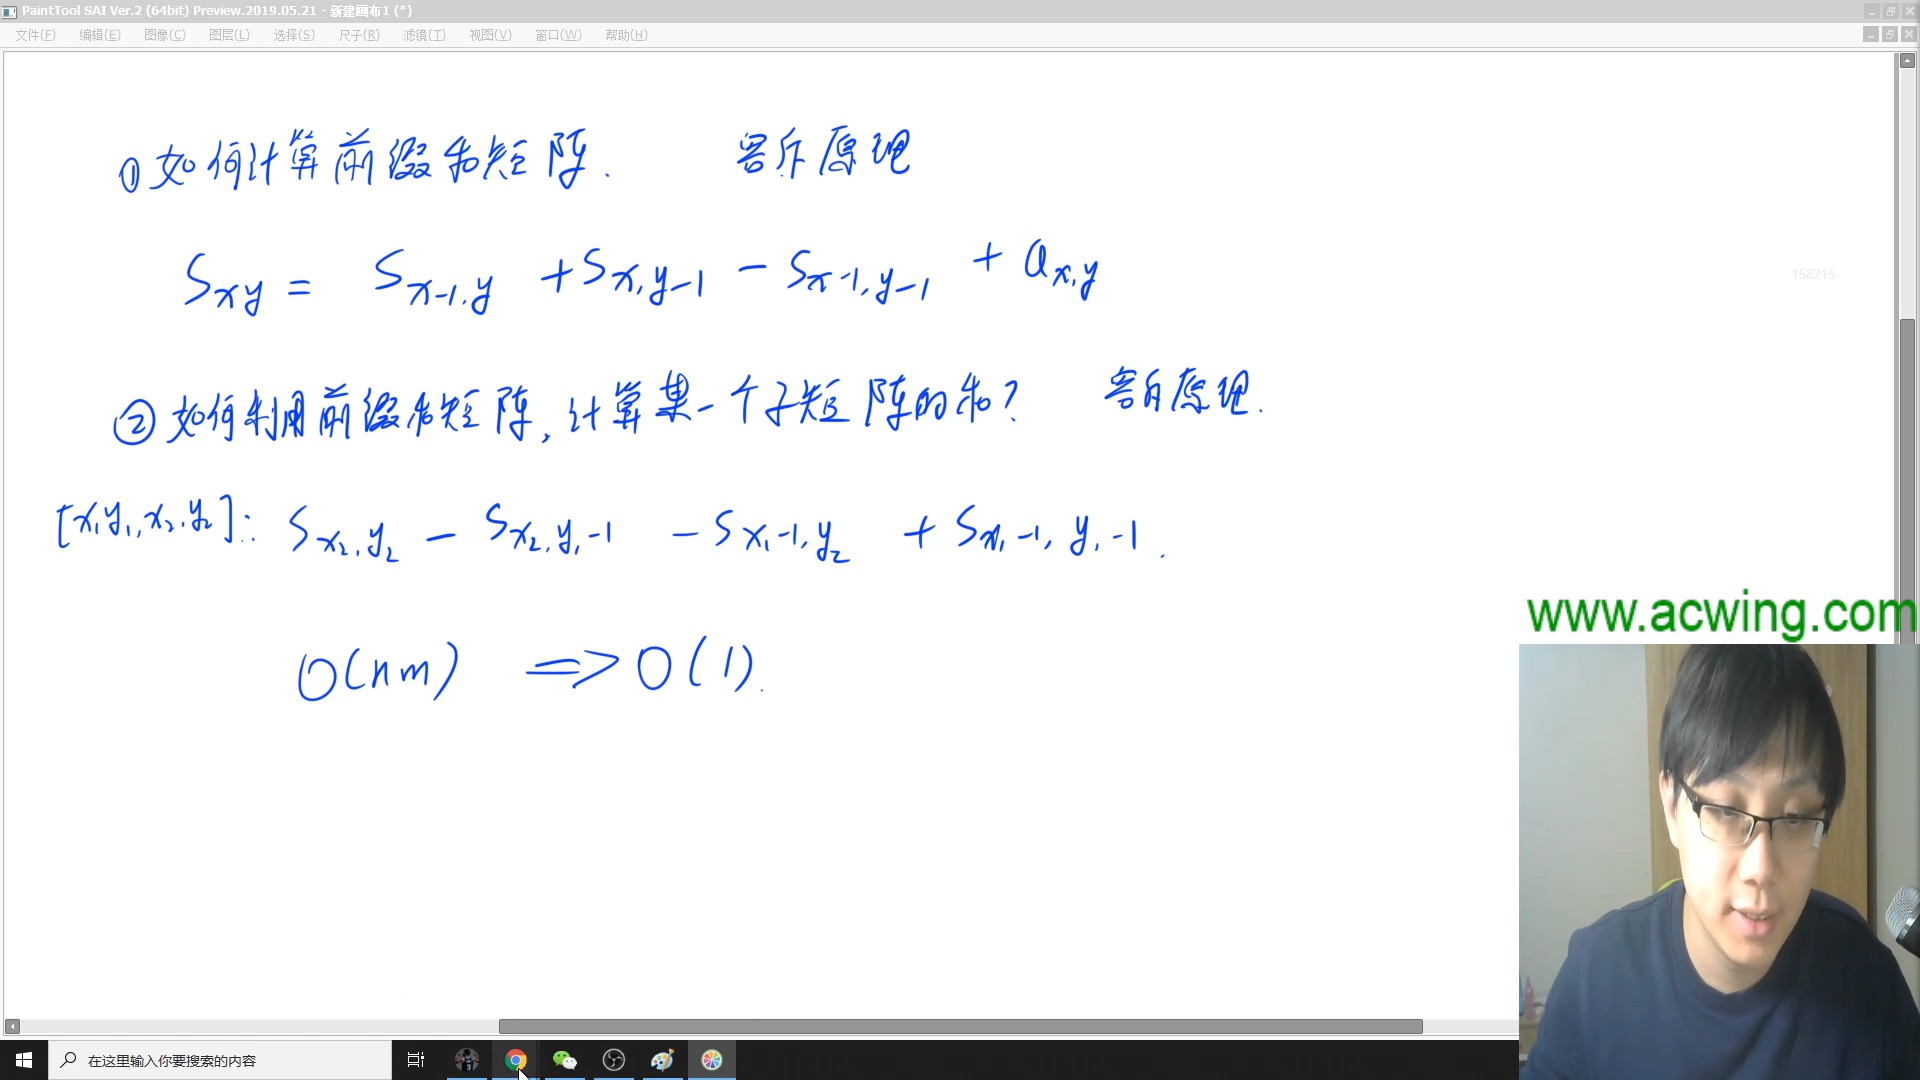 PaintTool SAI Ver.2 (64bit) Preview.2019.05.21 - 新建画布1 (*)
文件(F) 编辑(E) 图像(C) 图层(L) 选择(S) 尺子(R) 滤镜(T) 视图(V) 窗口(W) 帮助(H)
①如何计算前缀和矩阵. 容斥原理
Sxy = Sx-1,y + Sx,y-1 - Sx-1,y-1 + ax,y
158215
②如何利用前缀和矩阵,计算某一个子矩阵的和? 容斥原理.
[x1y1,x2,y2]:: Sx2,y2 - Sx2,y1-1 - Sx1-1,y2 + Sx1-1,y1-1.
www.acwing.com
O(nm) => O(1).
在这里输入你要搜索的内容